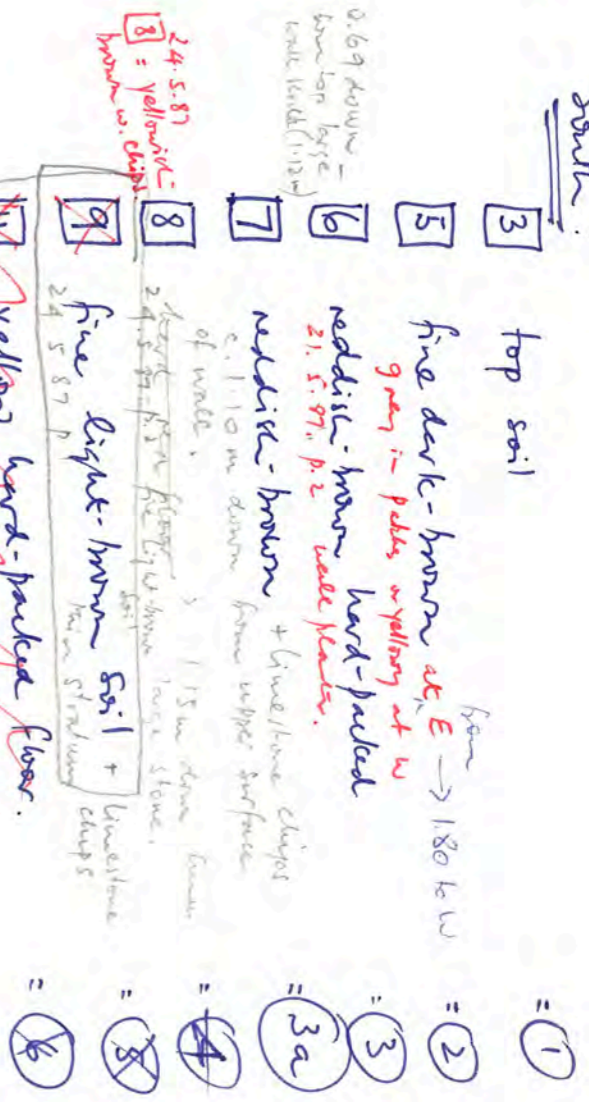 South.
[3] top soil = (1)
[5] fine dark-brown at E → from 1.80 to W = (2)
grey in patches yellowy at W
[6] reddish-brown hard-packed = (3)
21.5.87. p.2 wall plaster.
0.69 down =
from top large
wall
[7] reddish-brown + limestone chips = (3a)
c. 1.10 m down from upper surface
of wall.
24.5.87
[8] = yellowish
brown w. chips.
[8] hard floor 1.15m down from = (4)
24.5.87 p.5 fine light-brown soil large stone.
[9] fine light-brown soil + limestone chips = (5)
24 5 87 p thin stratum
yellow hard-packed floor. = (6)